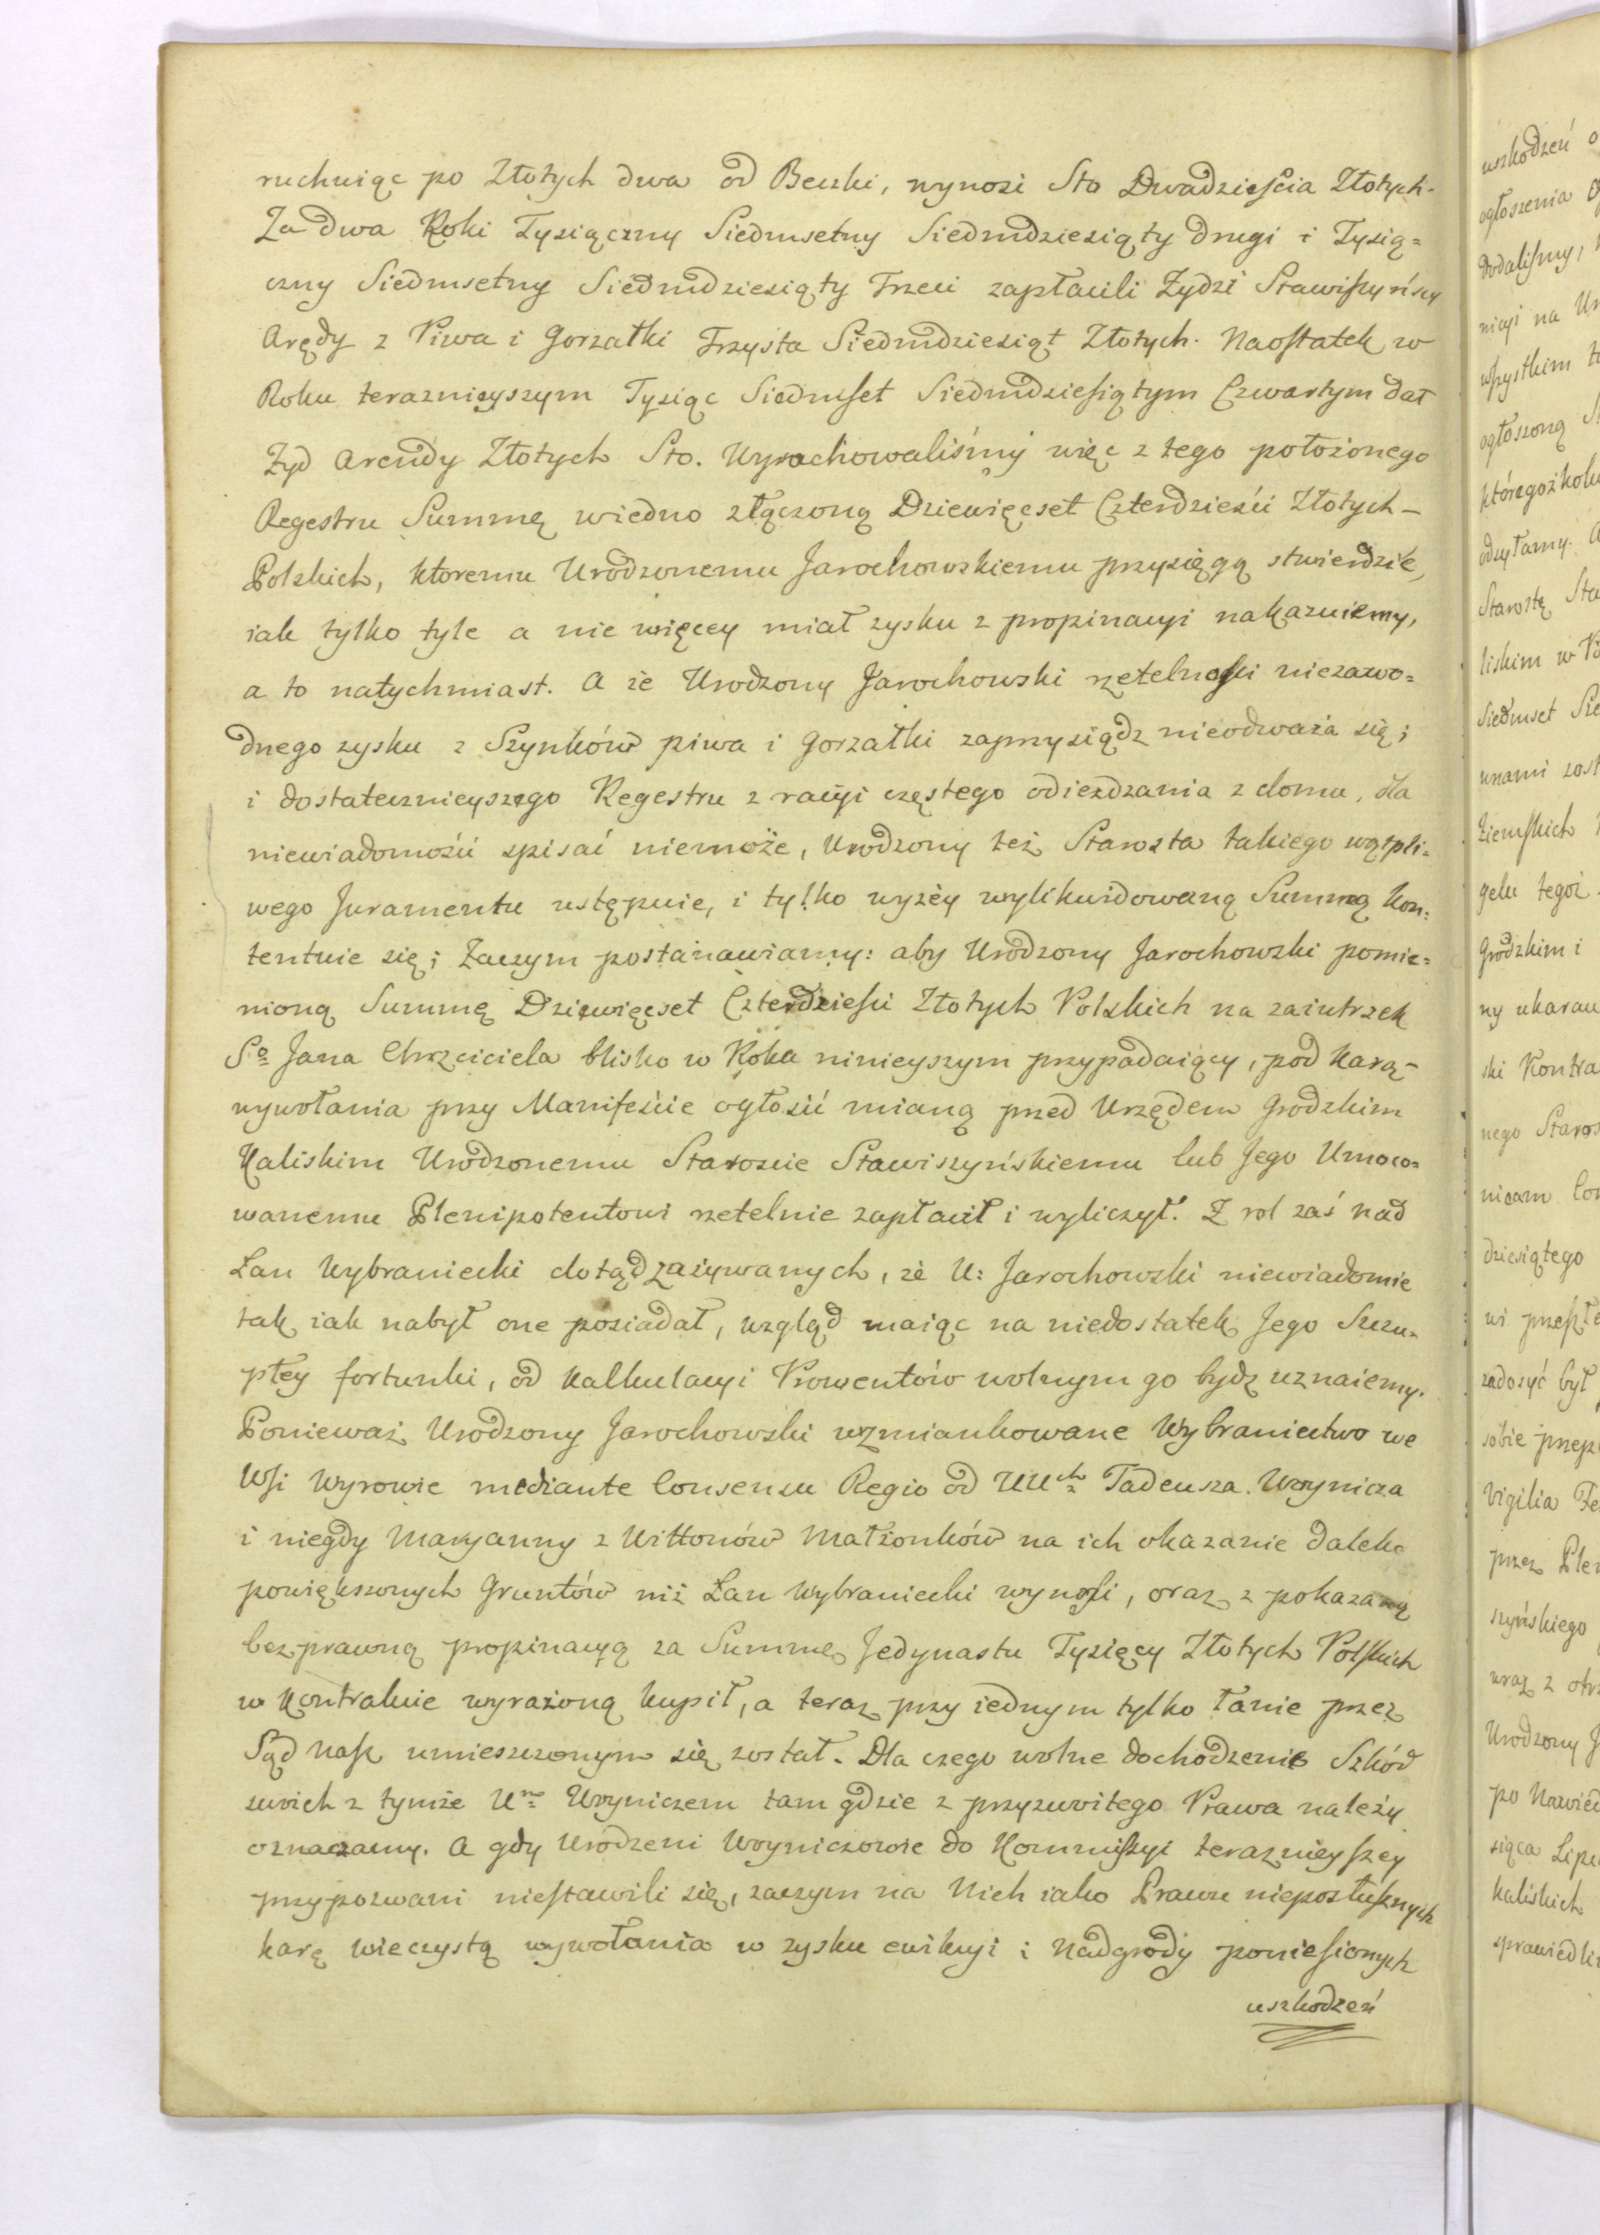 ruchuiąc po Złotych dwa od Beczki, wynosi Sto Dwadzieścia Złotych.
Za dwa Roki Tysiączny Siedmsetny Siedmdziesiąty drugi i Tysią=
czny Siedmsetny Siedmdziesiąty Trzeci zapłacili Żydzi Stawiszyńscy
Arędy z Piwa i Gorzałki Trzysta Siedmdziesiąt Złotych. Naostatek w
Roku teraznieyszym Tysiąc Siedmset Siedmdziesiątym Czwartym dał
Żyd Arendy Złotych Sto. Wyrachowaliśmy więc z tego położonego
Regestru Summę wiedno złączoną Dziewięćset Czterdzieści Złotych –
Polskich, ktoremu Urodzonemu Jarochowskiemu przysięgą stwierdzić,
iak tylko tyle a nie więcey miał zysku z propinacyi nakazuiemy,
a to natychmiast. A że Urodzony Jarochowski rzetelności niezawo=
dnego zysku z Szynków piwa i gorzałki zaprzysiądz nieodważa się;
i dostatecznieyszego Regestru z racyi częstego odiezdzania z domu, dla
niewiadomości spisać niemoże, Urodzony też Starosta takiego wątpli=
wego Juramentu ustępuie, i tylko wyżey wylikwidowaną Summą kon=
tentuie się; Zaczym postanawiamy: aby Urodzony Jarochowski pomie=
nioną Summę Dziewięćset Czterdzieści Złotych Polskich na zaiutrzek
Sº Jana Chrzciciela blisko w Roku ninieyszym przypadaiący, pod karą –
wywołania przy Manifeście ogłosić mianą przed Urzędem Grodzkim
Kaliskim Urodzonemu Staroscie Stawiszyńskiemu lub Jego Umoco=
wanemu Plenipotentowi rzetelnie zapłacił i wyliczył. Z rol zaś nad
Łan Wybraniecki dotąd zażywanych, że U: Jarochowski niewiadomie
tak iak nabył one posiadał, wzgląd maiąc na niedostatek Jego Szczu=
płey fortunki, od kalkulacyi Prowentów wolnym go bydz uznaiemy.
Ponieważ Urodzony Jarochowski wzmiankowane Wybraniectwo we
Wsi Wyrowie mediante Consensu Regio od UUch Tadeusza Woynicza
i niegdy Maryanny z Wittonów Małżonków na ich okazanie daleko
powiększonych Gruntów niż Łan Wybraniecki wynosi, oraz z pokazaną
bezprawną propinacyą za Summę Jedynastu Tysięcy Złotych Polskich
w Kontrakcie wyrażoną kupił, a teraz przy iednym tylko łanie przez
Sąd Nasz umieszczonym się został. Dla czego wolne dochodzenie Szkód
swich z tymże Um Woyniczem tam gdzie z przyzwitego Prawa należy
oznaczamy. A gdy Urodzeni Woyniczowie do Kommissyi teraznieyszey
przypozwani niestawili się, zaczym na Nich iako Prawu nieposłusznych
karę wieczystą wywołania w zysku ewikcyi i Nadgrody poniesionych
uszkodzeń